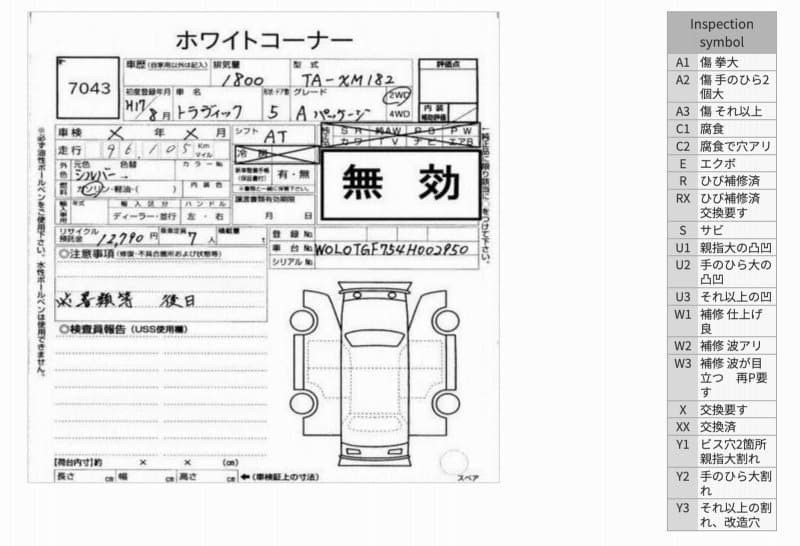 ホワイトコーナー
7043
車歴 (自家用以外は記入) 排気量 型式 評価点
1800 TA-XM182
初度登録年月 車名 形状・ドア数 グレード 2WD
H17/8月 トラヴィック 5 Aパッケージ 4WD
内装補助評価
車検 × 年 × 月 シフト AT
SR 純AW PS PW
カワ TV ナビ エアB
走行 96,105 Km マイル
冷房
外色 元色 色替 カラーNo.
シルバー→
新車整備手帳(保証書付) 有・無
※書類と一緒に保管下さい。
無効
燃料 ガソリン・軽油・( ) 内装色
譲渡書類有効期限
月 日
輸入車専用 年式 輸入区分 ハンドル
ディーラー・並行 左・右
リサイクル預託金 12,790円 乗車定員 7人 積載量 t
登録No.
車台No. W0L0TGF754H002950
シリアルNo.
◎注意事項 (修復・不具合箇所および状態等)
※書類等 後日
◎検査員報告 (USS使用欄)
【荷台内寸】約 × × (cm)
長さ cm 幅 cm 高さ cm ←(車検証上の寸法)
スペア
※必ず油性ボールペンをご使用下さい。水性ボールペンは使用できません。
Inspection
symbol
A1 傷 拳大
A2 傷 手のひら2
個大
A3 傷 それ以上
C1 腐食
C2 腐食で穴アリ
E エクボ
R ひび補修済
RX ひび補修済
交換要す
S サビ
U1 親指大の凸凹
U2 手のひら大の
凸凹
U3 それ以上の凹
W1 補修 仕上げ
良
W2 補修 波アリ
W3 補修 波が目
立つ 再P要
す
X 交換要す
XX 交換済
Y1 ビス穴2箇所
親指大割れ
Y2 手のひら大割
れ
Y3 それ以上の割
れ、改造穴